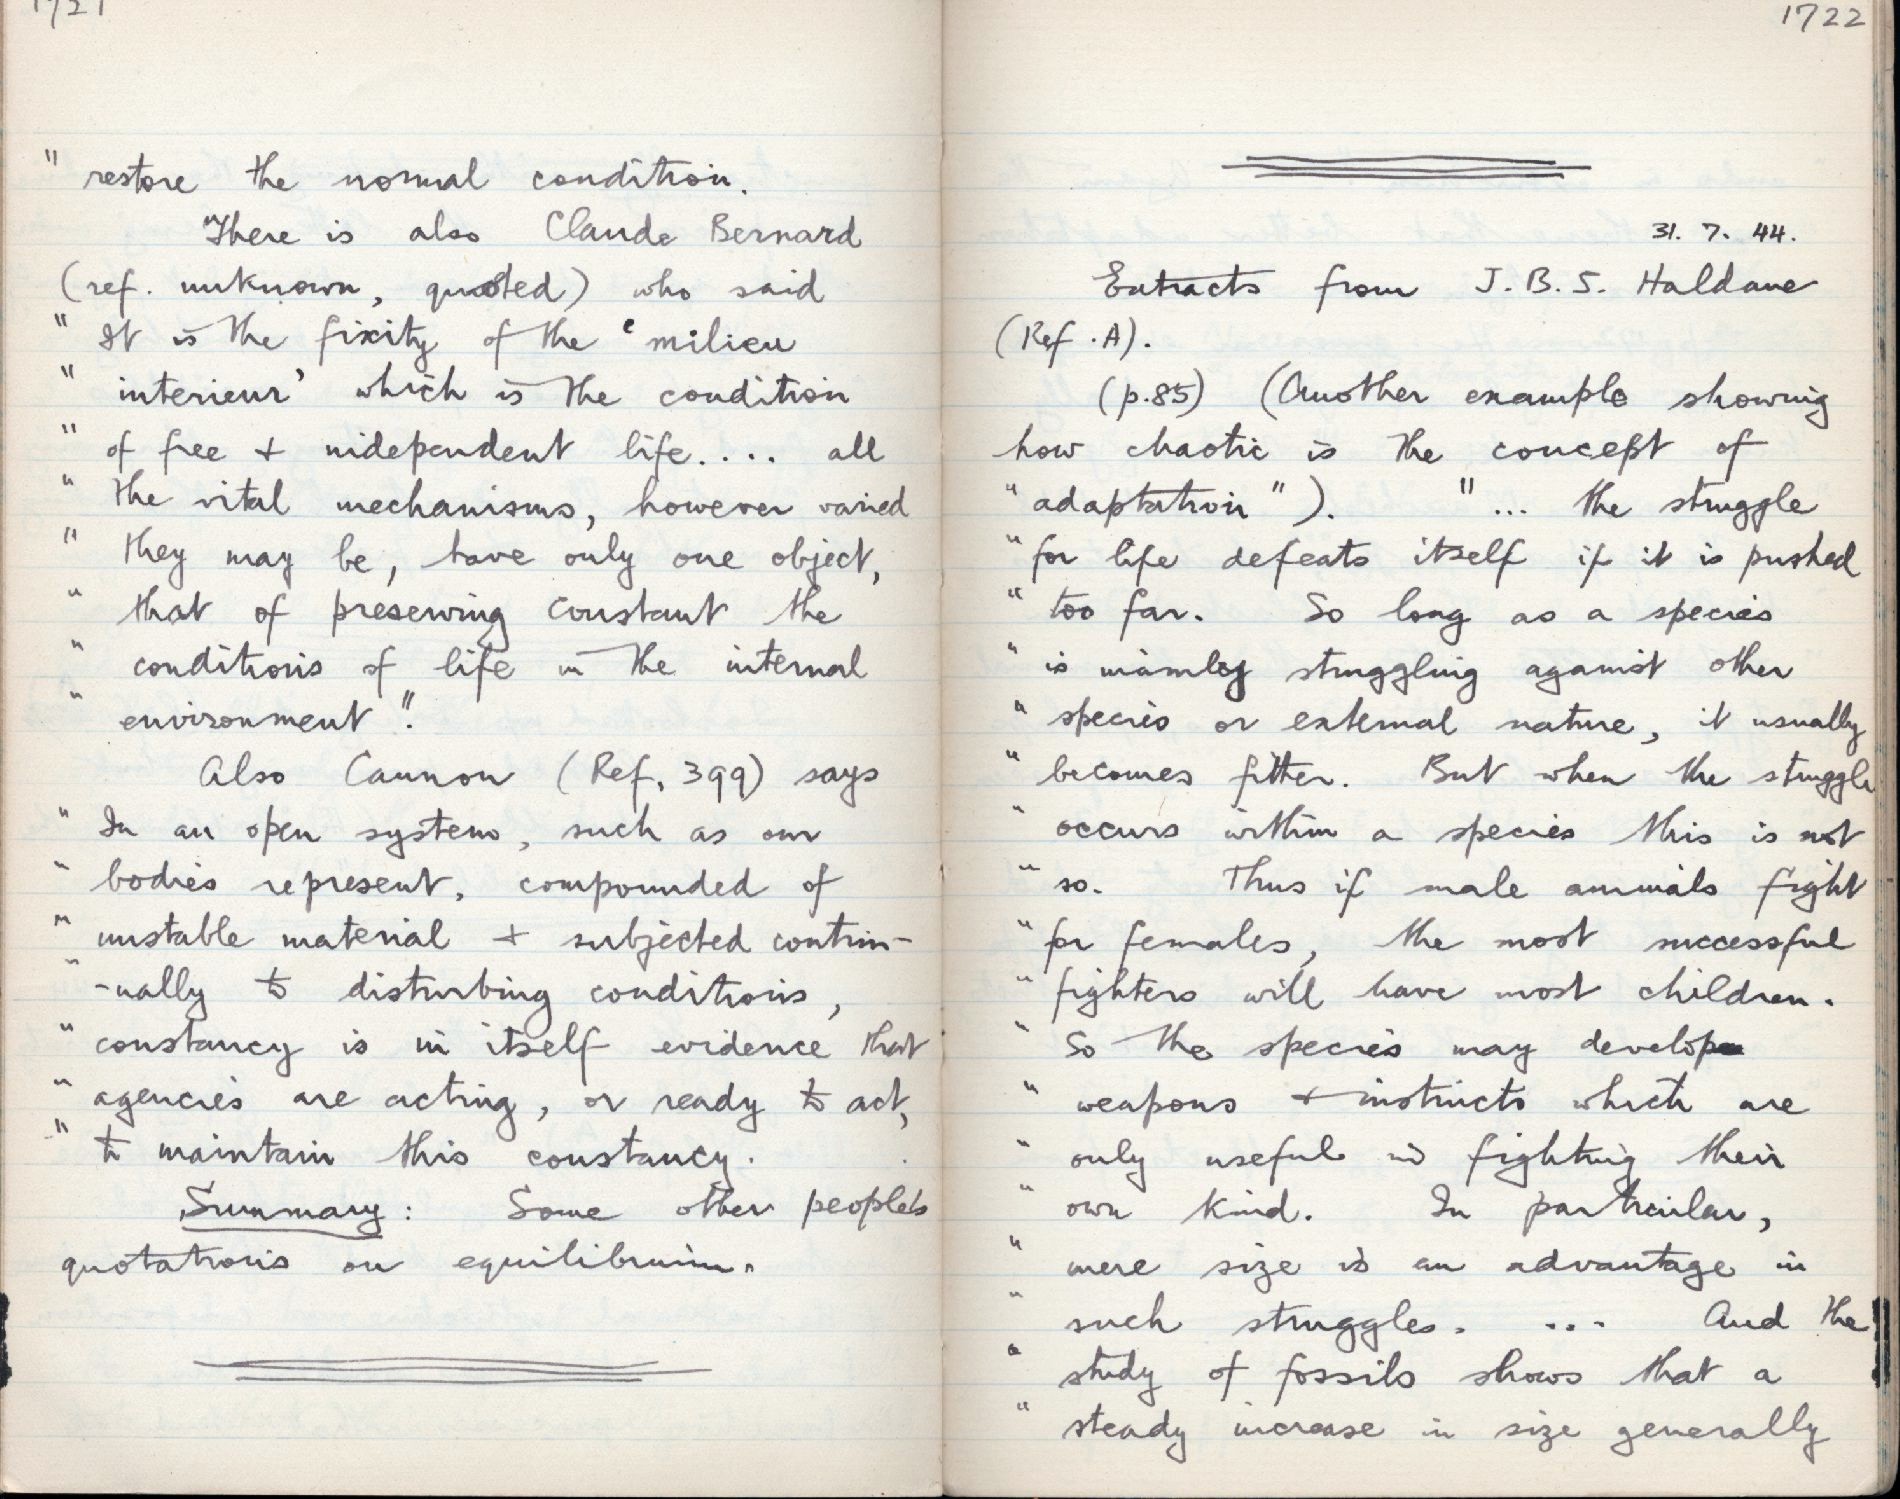 1721
" restore the normal condition.
"There is also Claude Bernard
(ref. unknown, quoted) who said
" It is the fixity of the 'milieu
" interieur' which is the condition
" of free + independent life.... all
" the vital mechanisms, however varied
" they may be, have only one object,
" that of preserving constant the
" conditions of life in the internal
" environment".
Also Cannon (Ref. 399) says
" In an open system, such as our
" bodies represent, compounded of
" unstable material + subjected contin-
" -ually to disturbing conditions,
" constancy is in itself evidence that
" agencies are acting, or ready to act,
" to maintain this constancy.
Summary: Some other people's
quotations on equilibrium.
1722
31. 7. 44.
Extracts from J.B.S. Haldane
(Ref. A).
(p.85) (Another example showing
how chaotic is the concept of
"adaptation"). "... the struggle
" for life defeats itself if it is pushed
" too far. So long as a species
" is mainly struggling against other
" species or external nature, it usually
" becomes fitter. But when the struggle
" occurs within a species this is not
" so. Thus if male animals fight
" for females, the most successful
" fighters will have most children.
" So the species may develop
" weapons + instincts which are
" only useful in fighting their
" own kind. In particular,
" mere size is an advantage in
" such struggles. ... And the
" study of fossils shows that a
" steady increase in size generally